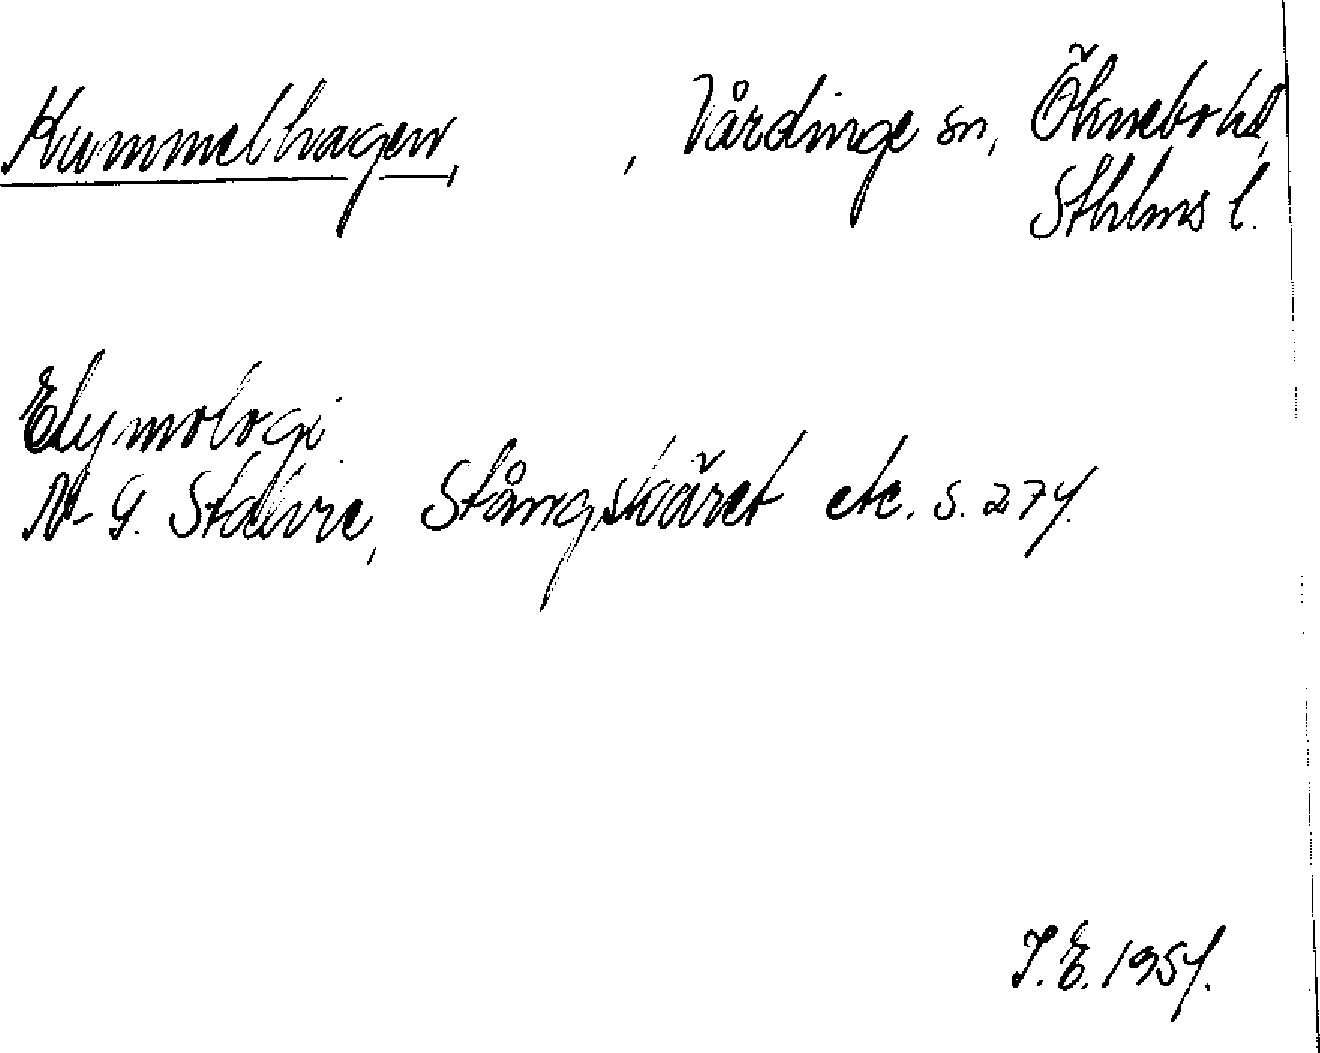 Kummelhagen, , Vårdinge sn, Öknebo hd,
Sthlms l.
Etymologi
N-G. Stahre, Stångskäret etc. s. 274.
I. E. 1954.